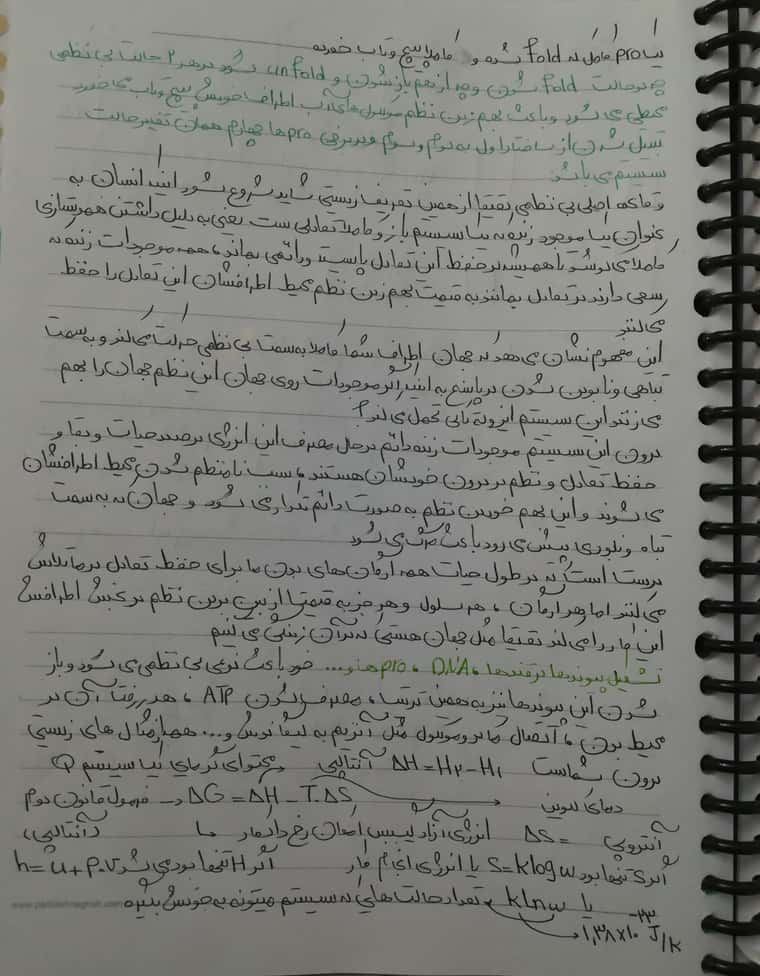 یک pro کامل که fold شده و کاملا پیچ و تاب خورده
چه در حالت fold شدن و چه از هم باز شدن و unfold شود در هر ۲ حالت بی نظمی
محیطی می شود و باعث بهم زدن نظم مولکول های آب اطراف خودش پیچ و تاب می خورد
تبدیل شدن از ساختار اول به دوم و سوم و در برخی pro ها چهارم همان تغییر حالت
سیستم می باشد
و ماکه اصلی بی نظمی دقیقا از همین تعریف زیستی شاید شروع بشود اینکه انسان به
عنوان یک موجود زنده یک سیستم باز و کاملا تعادلی ست یعنی به دلیل داشتن هومئوستازی
کاملا می کوشد تا همیشه در حفظ این تعادل پایسته و دائمی بماند، همه موجودات زنده که
سعی دارند در تعادل بمانند به قیمت بهم زدن نظم محیط اطرافشان این تعادل را حفظ
می کنند
این مفهوم نشان می دهد که جهان اطراف شما کاملا به سمت بی نظمی حرکت می کند و به سمت
تباهی و نابودی شدن در پاسخ به اینکه اگر موجودات روی جهان این نظم جهان را بهم
می زنند این سیستم ایزوله یا تحمل می کند؟
درون این سیستم موجودات زنده دائم در حال مصرف این انرژی درصدد حیات و بقا و
حفظ تعادل و نظم در درون خودشان هستند، سبب نامنظم شدن محیط اطرافشان
می شوند و این بهم خوردن نظم به صورت دائم تکرار می شود و جهان که به سمت
تباه و نابودی پیش می رود باعث مرگ می شود
درست است که در طول حیات همه ارگان های بدن ما برای حفظ تعادل در ما تلاش
می کنند اما هر ارگان، هر سلول و هر جز به قیمت از بین بردن نظم در بخش اطرافش
این کار را می کند دقیقا مثل جهان هستی که در آن زندگی می کنیم
تشکیل پیوندها در قندها، DNA، pro ها و... خود باعث نوعی بی نظمی می شود و باز
شدن این پیوندها نیز به همین ترتیب، مصرف شدن ATP، هدر رفت آن در
محیط بدن، اتصال ماکرومولکول مثل آنزیم به لیگاندش و... همه از مثال های زیستی
درون شماست ΔH = H₂ - H₁ آنتالپی محتوای گرمای یک سیستم Q
دمای کلوین ΔG = ΔH - T.ΔS → فرمول قانون دوم
آنتروپی = ΔS انرژی آزاد گیبس امکان رخ دادن کار ما آنتالپی،
اگر S تنها بود S = k log w یا انرژی انجام کار اگر H تنها بود می شد h = u + p.v
یا k ln w تعداد حالت هایی که سیستم میتونه به خودش بگیره
۱,۳۸×۱۰⁻²³ J/K